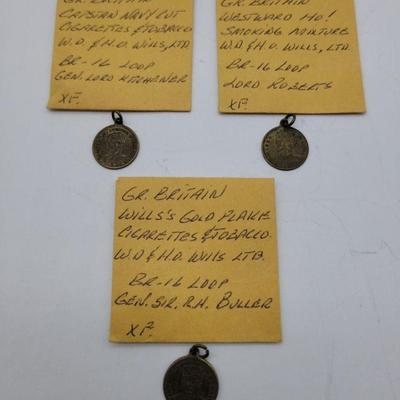 GR. BRITAIN
CAPSTAN NAVY CUT
CIGARETTES & TOBACCO
W.D. & H.O. WILLS, LTD.
BR-16 LOOP
GEN. LORD KITCHENER
XF.
GR. BRITAIN
WESTWARD HO!
SMOKING MIXTURE
W.D. & H.O. WILLS, LTD.
BR-16 LOOP
LORD ROBERTS
XF.
GR. BRITAIN
WILLS'S GOLD FLAKE
CIGARETTES & TOBACCO.
W.D & H.O. WILLS LTD.
BR-16 LOOP
GEN. SIR. R.H. BULLER
XF.